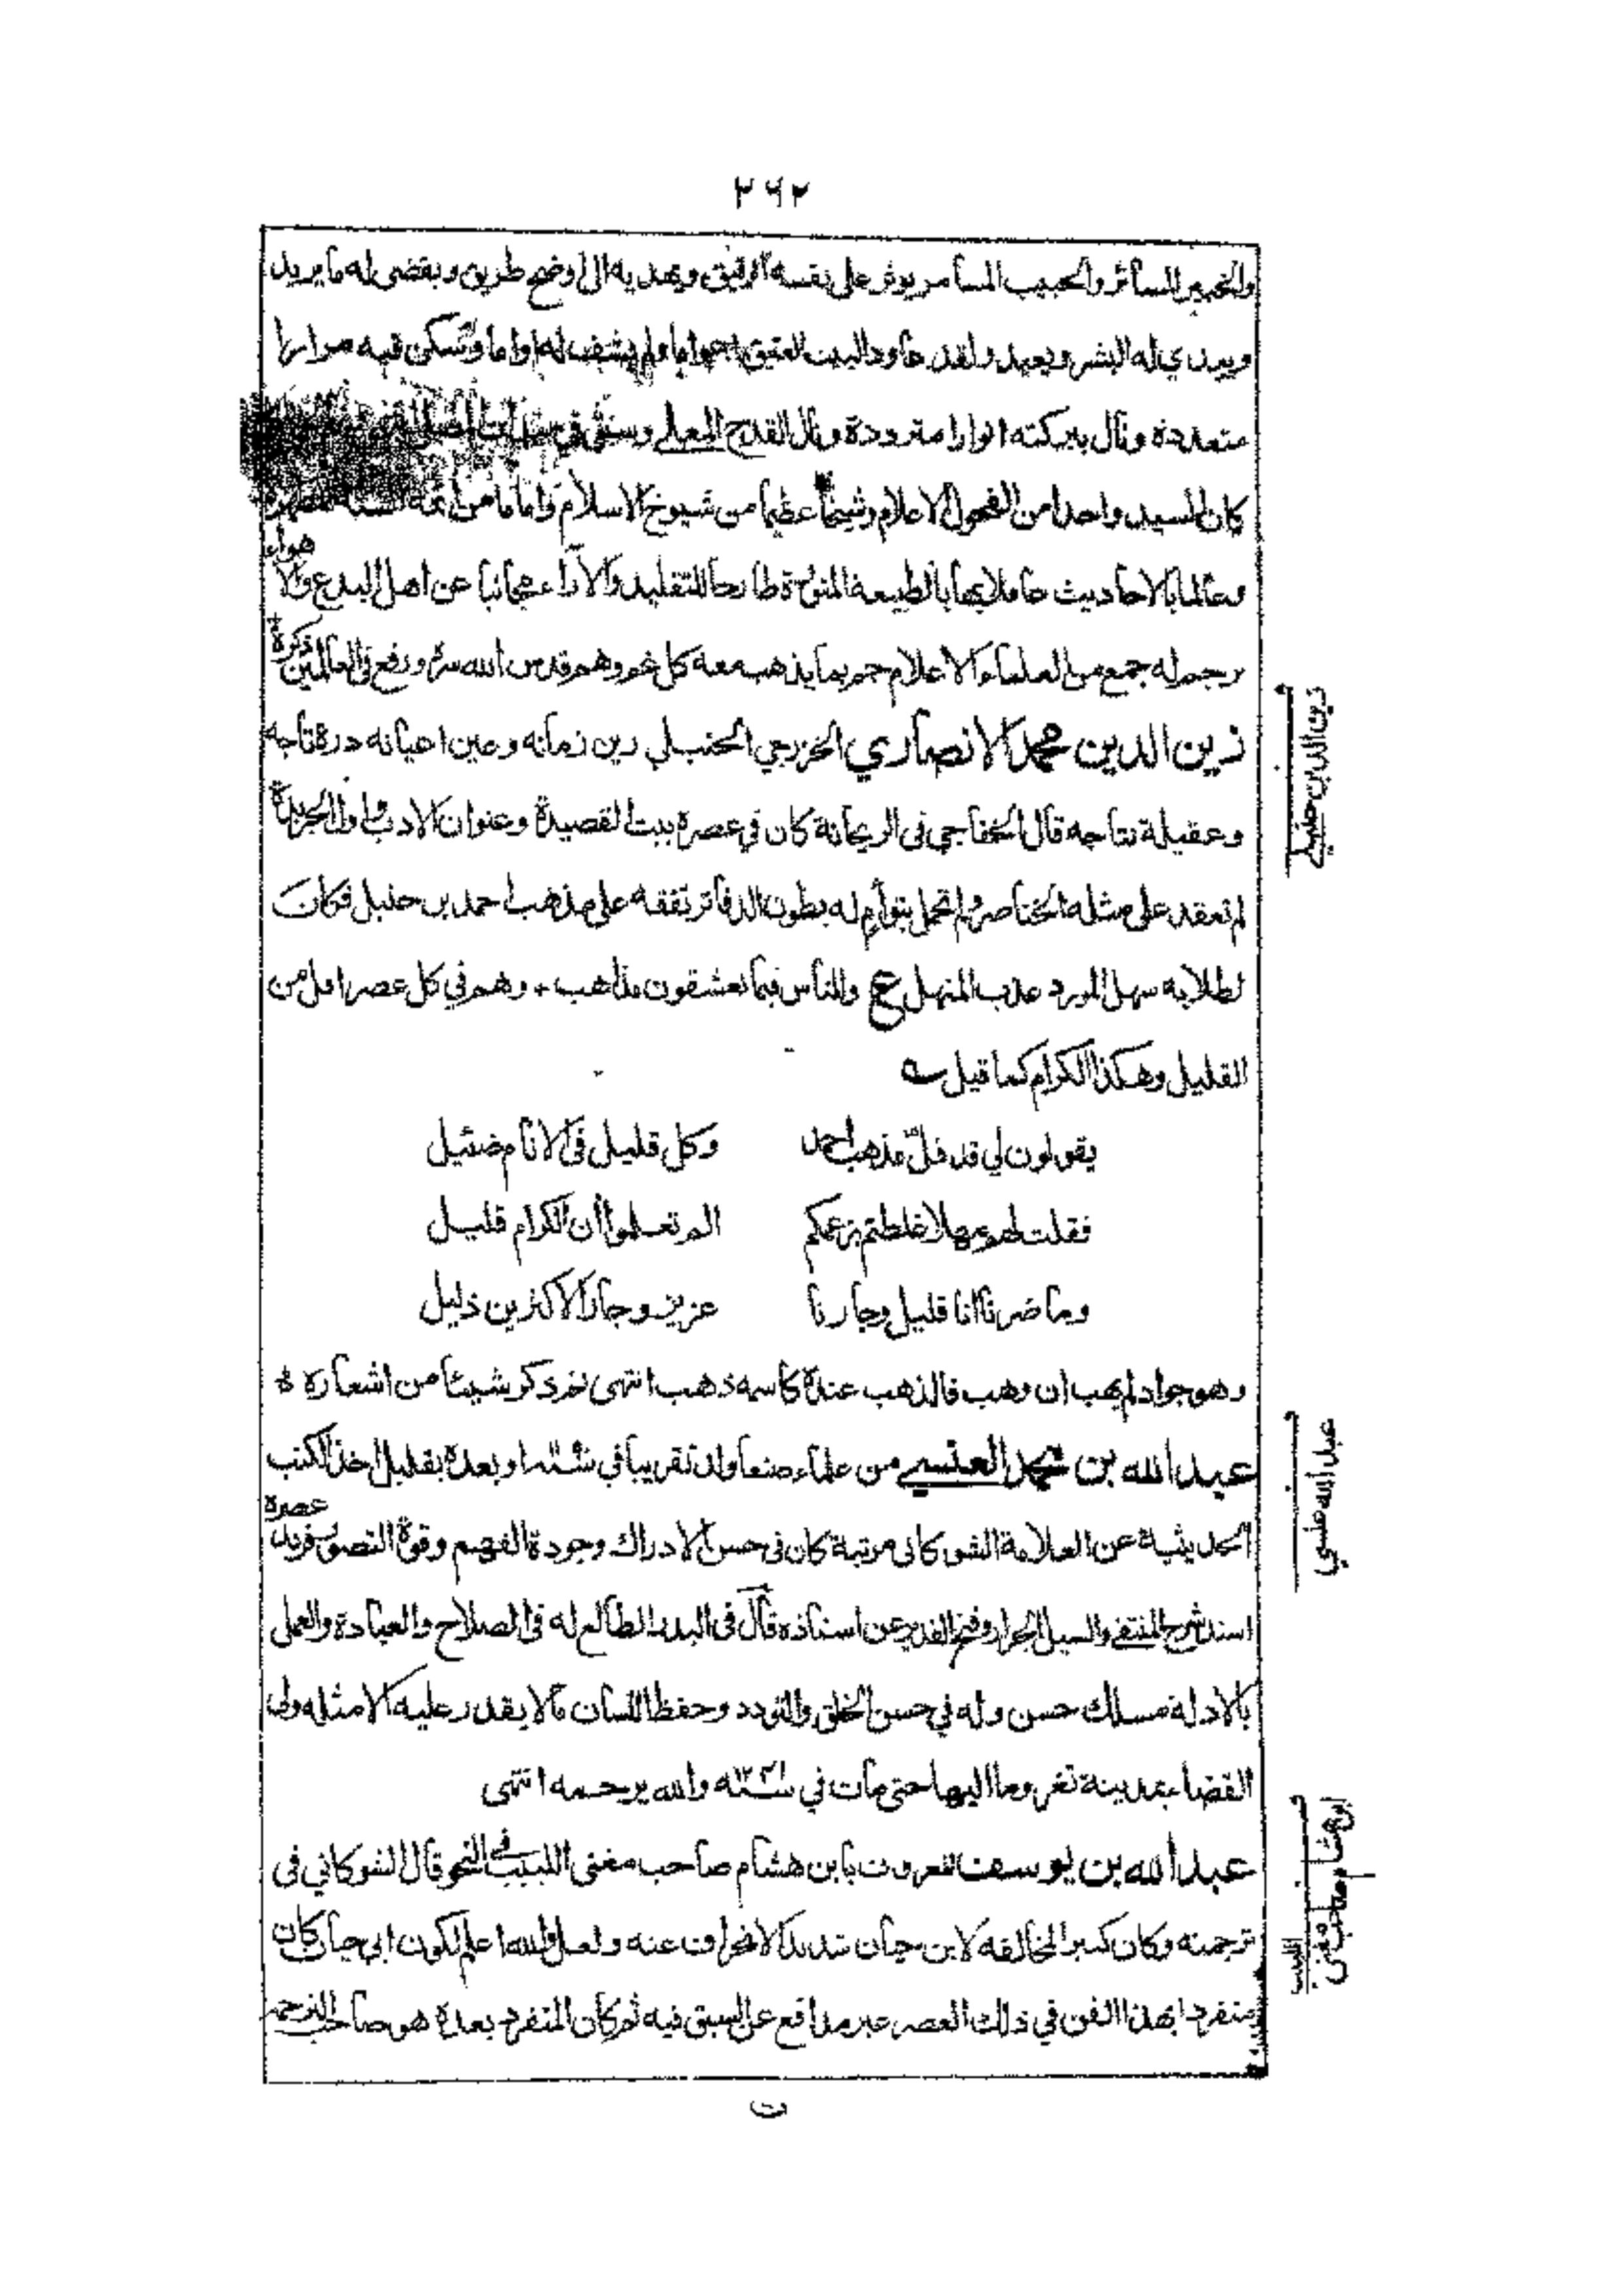 ٢٦٢
والخبير السائر والحبيب المسامر يوثر على نفسه الرفيق ويهديه الى اوضح طريق ويقضى له ما يريد
ويبدي له البشر ويعيد ولقد عاود البيت العتيق اعواما ولم يشف له اواما وتمسكن فيه مرارا
متعددة ونال ببركته انوارا متوددة ونال القدح المعلى وسقى في
كان السيد واحدا من الفحول الاعلام وشيخا عظيما من شيوخ الاسلام واماما من ائمة السنة المطهرة
وعالما بالاحاديث عاملا بها بالطبيعة المنورة طارحا للتقليد والآراء مجانبا عن اهل البدع والاهواء
ترجم له جمع من العلماء الاعلام جم بما يذهب معه كل غم وهم قدس الله سره ورفع في العالمين ذكره +
زين الدين محمد الانصاري الخزرجي الحنبلي زين زمانه وعين اعيانه درة تاجه
وعقيلة نتاجه قال الخفاجي فى الريحانة كان في عصره بيت القصيدة وعنوان الادب واول الجريدة
لم تعقد على مثله الخناصر ولم تحمل بتوأم له بطون الدفاتر تفقه على مذهب احمد بن حنبل فكان
لطلابه سهل المورد عذب المنهل ع وللناس فيما يعشقون مذاهب + وهم في كل عصر اقل من
القليل وهكذا الكرام كما قيل ؎
يقولون لي قد قلّ مذهب احمد وكل قليل فى الانام ضئيل
فقلت لهم مهلا غلطتم بزعمكم الم تعلموا ان الكرام قليل
وما ضرنا انا قليل وجارنا عزيز وجار الاكثرين ذليل
وهو جواد لم يهب ان وهب فالذهب عنده كاسمه ذهب انتهى ثم ذكر شيئا من اشعاره +
عبد الله بن محمد العنسي من علماء صنعا ولد تقريبا في او بعده بقليل اخذ الكتب
الحديثية عن العلامة الشوكانى مرتبة كان فى حسن الادراك وجودة الفهم وقوة التصور فريد عصره
اسند شرح المنتقى والسيل الجرار وفتح القدير عن استاذه قال فى البدر الطالع له فى الصلاح والعبادة والعمل
بالادلة مسلك حسن وله في حسن الخلق والتودد وحفظ اللسان ما لا يقدر عليه الا مثله ولى
القضا بمدينة تعز وما اليها حتى مات في والله يرحمه انتهى
عبد الله بن يوسف المعروف بابن هشام صاحب مغنى اللبيب في النحو قال الشوكاني فى
ترجمته وكان كبير المخالفه لابن حيان شديد الانحراف عنه ولعل والله اعلم لكون ابى حيان كان
منفردا بهذا الفن في ذلك العصر غير مدافع عن السبق فيه ثم كان المنفرد بعده هو صاحب الترجمه
ت
زين الدين حنبلي
عبد الله عنسي
ابن هشام صاحب مغنى
اللبيب